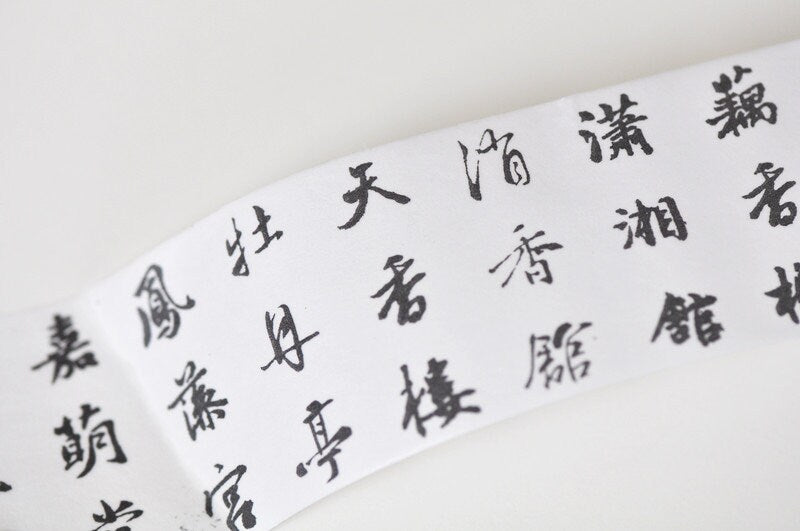 藕香
瀟湘館
消香館
天香樓
牡丹亭
鳳藻宮
嘉萌堂